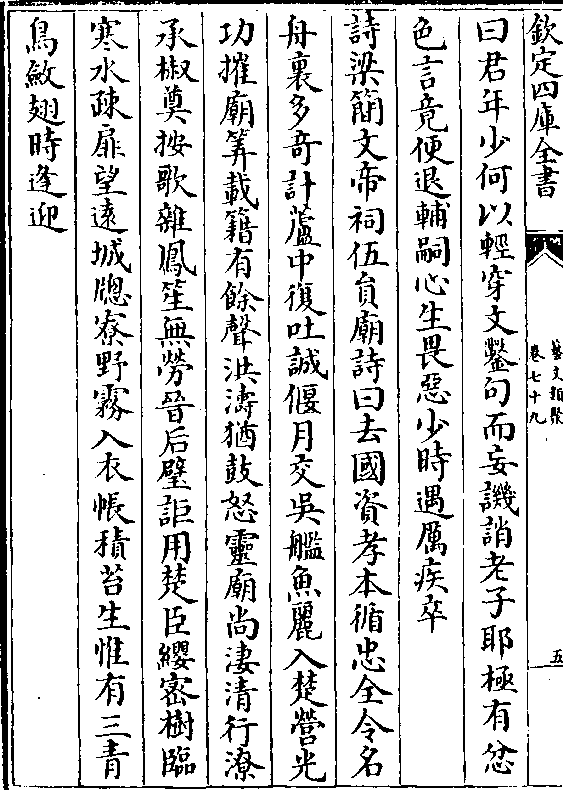 欽定四庫全書
藝文類聚
卷七十九
五
曰君年少何以輕穿文鑿句而妄譏誚老子耶極有忿
色言竟便退輔嗣心生畏惡少時遇厲疾卒
詩梁簡文帝祠伍員廟詩曰去國資孝本循忠全令名
舟裏多奇計蘆中復吐誠偃月交吳艦魚麗入楚營光
功摧廟筭載籍有餘聲洪濤猶鼓怒靈廟尚淒清行潦
承椒奠按歌雜鳳笙無勞晉后璧詎用楚臣纓密樹臨
寒水疎扉望遠城牕寮野霧入衣帳積苔生惟有三青
鳥斂翅時逢迎